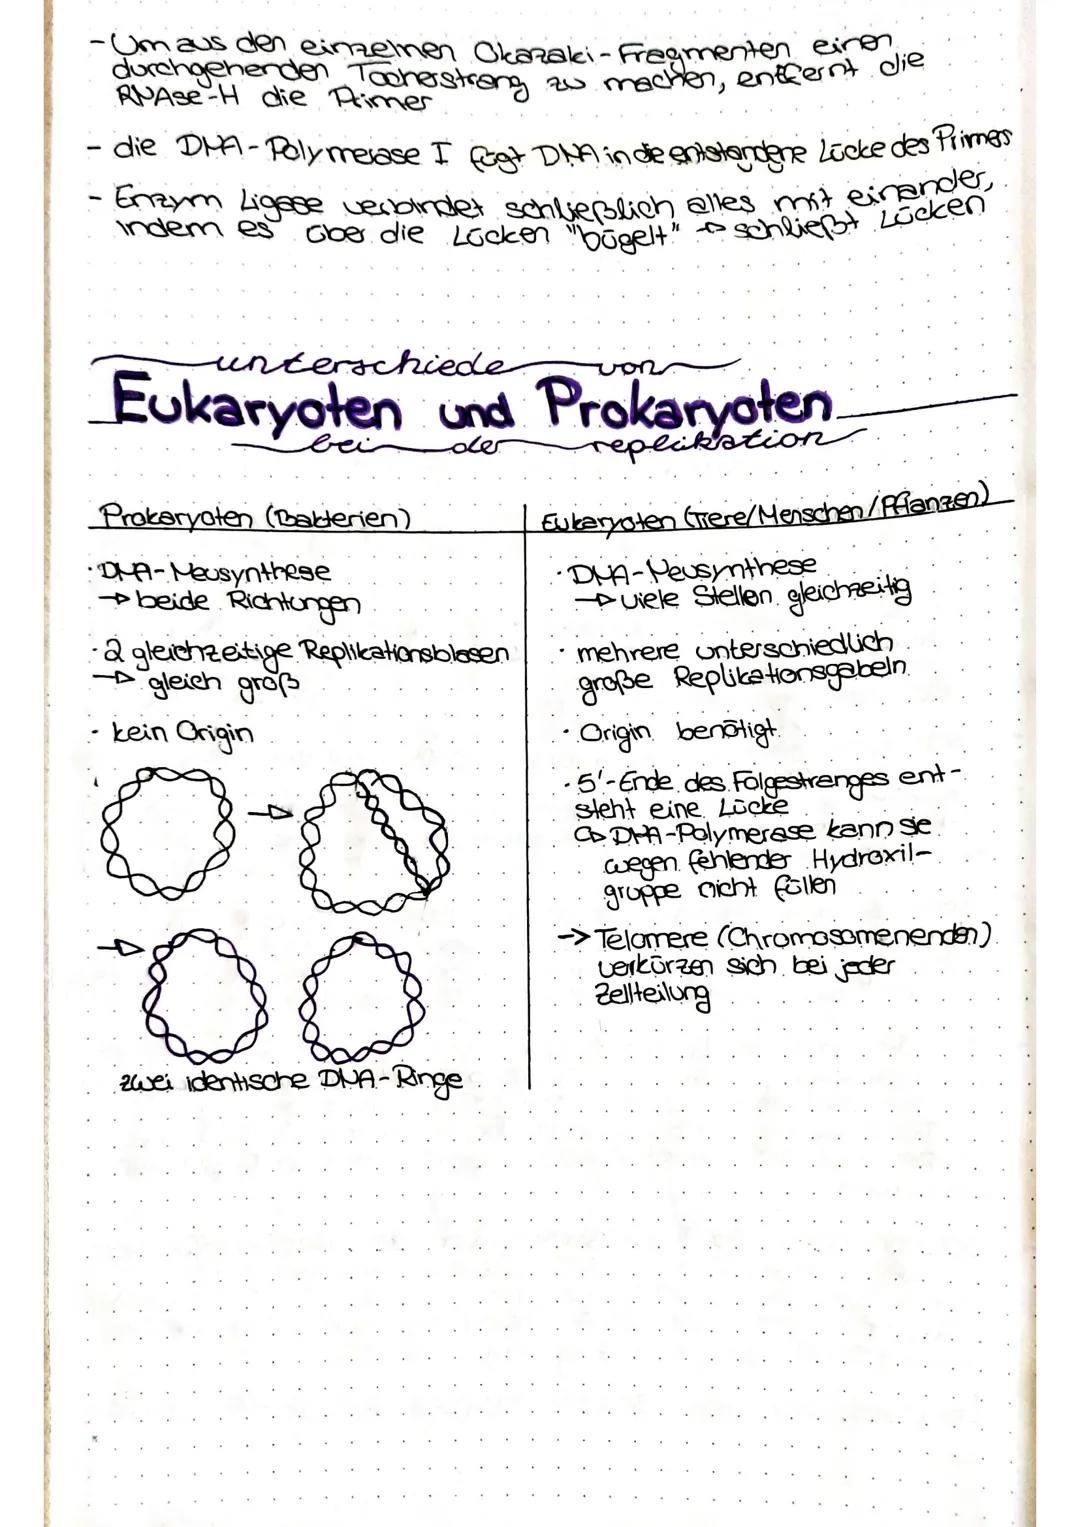 - Um aus den einzelnen Okazaki-Fragmenten einen
durchgehenden Tochterstrang zu machen, entfernt die
RNAse-H die Primer
- die DNA-Polymerase I fügt DNA in die entstandene Lücke des Primers
- Enzym Ligase verbindet schließlich alles mit einander,
indem es über die Lücken "bügelt" → schließt Lücken
unterschiede von
Eukaryoten und Prokaryoten
bei der replikation
Prokaryoten (Bakterien)
· DNA-Neusynthese
→ beide Richtungen
· 2 gleichzeitige Replikationsblasen
→ gleich groß
· kein Origin
→
→
zwei identische DNA-Ringe
Eukaryoten (Tiere/Menschen/Pflanzen)
· DNA-Neusynthese
→ viele Stellen gleichzeitig
· mehrere unterschiedlich
große Replikationsgabeln
· Origin benötigt
· 5'-Ende des Folgestranges ent-
steht eine Lücke
↳ DNA-Polymerase kann sie
wegen fehlender Hydroxil-
gruppe nicht füllen
→ Telomere (Chromosomenenden)
verkürzen sich bei jeder
Zellteilung